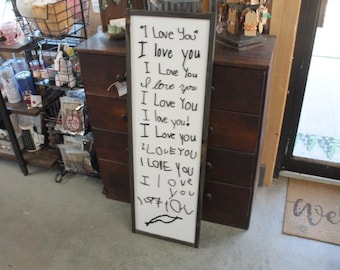 "I Love You"
I love you
I Love You
I love you
I Love You
I love you!
I Love you
I LOVE YOU
I LOVE YOU
I love
you
Wel